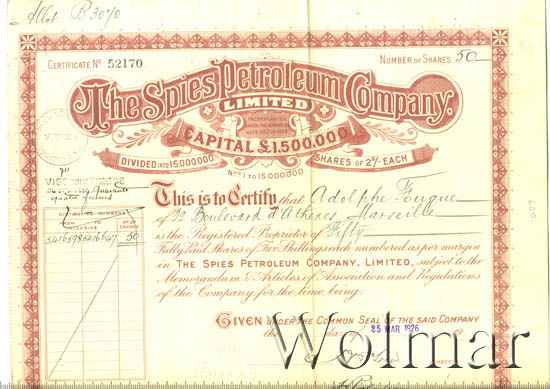 Allot B 3070
CERTIFICATE No 52170
NUMBER OF SHARES 50
The Spies Petroleum Company.
LIMITED
INCORPORATED
UNDER THE COMPANIES
CAPITAL £1,500,000
DIVIDED INTO 15,000,000 SHARES OF 2/- EACH
Nos 1 TO 15,000,000
This is to Certify that Adolphe Fouque
of Boulevard d'Athènes Marseille
is the Registered Proprietor of Fifty
Fully Paid Shares of Two Shillings each numbered as per margin
in THE SPIES PETROLEUM COMPANY, LIMITED, subject to the
Memorandum & Articles of Association and Regulations
of the Company for the time being.
GIVEN UNDER THE COMMON SEAL OF THE SAID COMPANY
day of 25 MAR 1926 19
DISTINCTIVE NUMBERS
FROM TO
INCLUSIVE
No OF SHARES
5416598 5416647 50
Wolmar